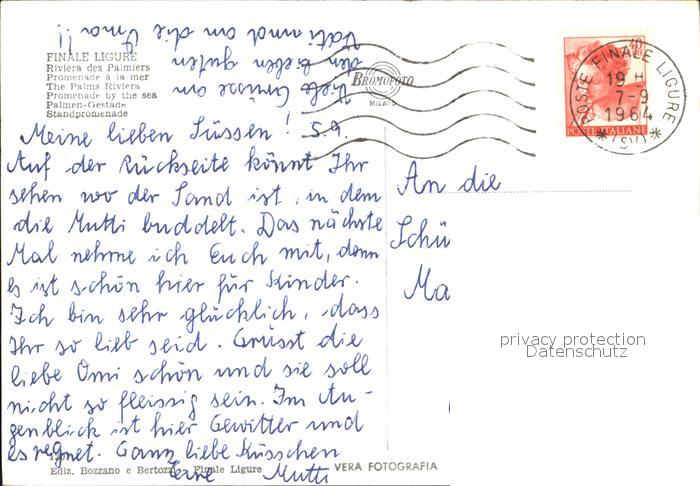 FINALE LIGURE
Riviera des Palmiers
Promenade à la mer
The Palms Riviera
Promenade by the sea
Palmen-Gestade
Standpromenade
Meine lieben Süssen! 5.9.
Auf der Rückseite könnt Ihr
sehen wo der Sand ist, in dem
die Mutti buddelt. Das nächste
Mal nehme ich Euch mit, denn
es ist schön hier für Kinder.
Ich bin sehr glücklich, dass
Ihr so lieb seid. Grüsst die
liebe Omi schön und sie soll
nicht so fleissig sein. Im Au-
genblick ist hier Gewitter und
es regnet. Ganz liebe Küsschen
Eure Mutti
Viele Grüsse an
den lieben guten
Vati und an die Oma!!
Ediz. Bozzano e Bertozzi Finale Ligure
VERA FOTOGRAFIA
BROMOFOTO
MILANO
40
POSTE ITALIANE
POSTE FINALE LIGURE
19 H
7-9
1964
* (SV) *
An die
Schü
Ma
privacy protection
Datenschutz